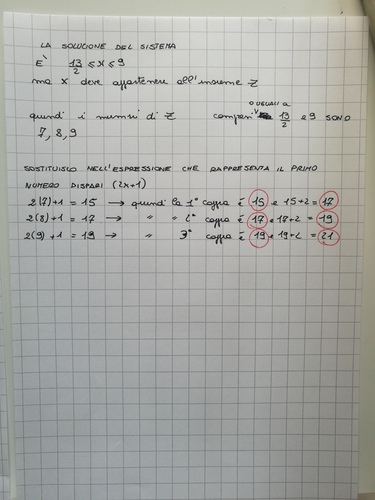 LA SOLUZIONE DEL SISTEMA
E' 13/2 ≤ x ≤ 9
ma x deve appartenere all'insieme Z
O UGUALI a
quindi i numeri di Z compresi 13/2 e 9 SONO
7, 8, 9
SOSTITUISCO NELL'ESPRESSIONE CHE RAPPRESENTA IL PRIMO
NUMERO DISPARI (2x+1)
2(7)+1 = 15 → quindi la 1ª coppia è 15 e 15+2 = 17
2(8)+1 = 17 → " " 2ª coppia è 17 e 17+2 = 19
2(9)+1 = 19 → " " 3ª coppia è 19 e 19+2 = 21